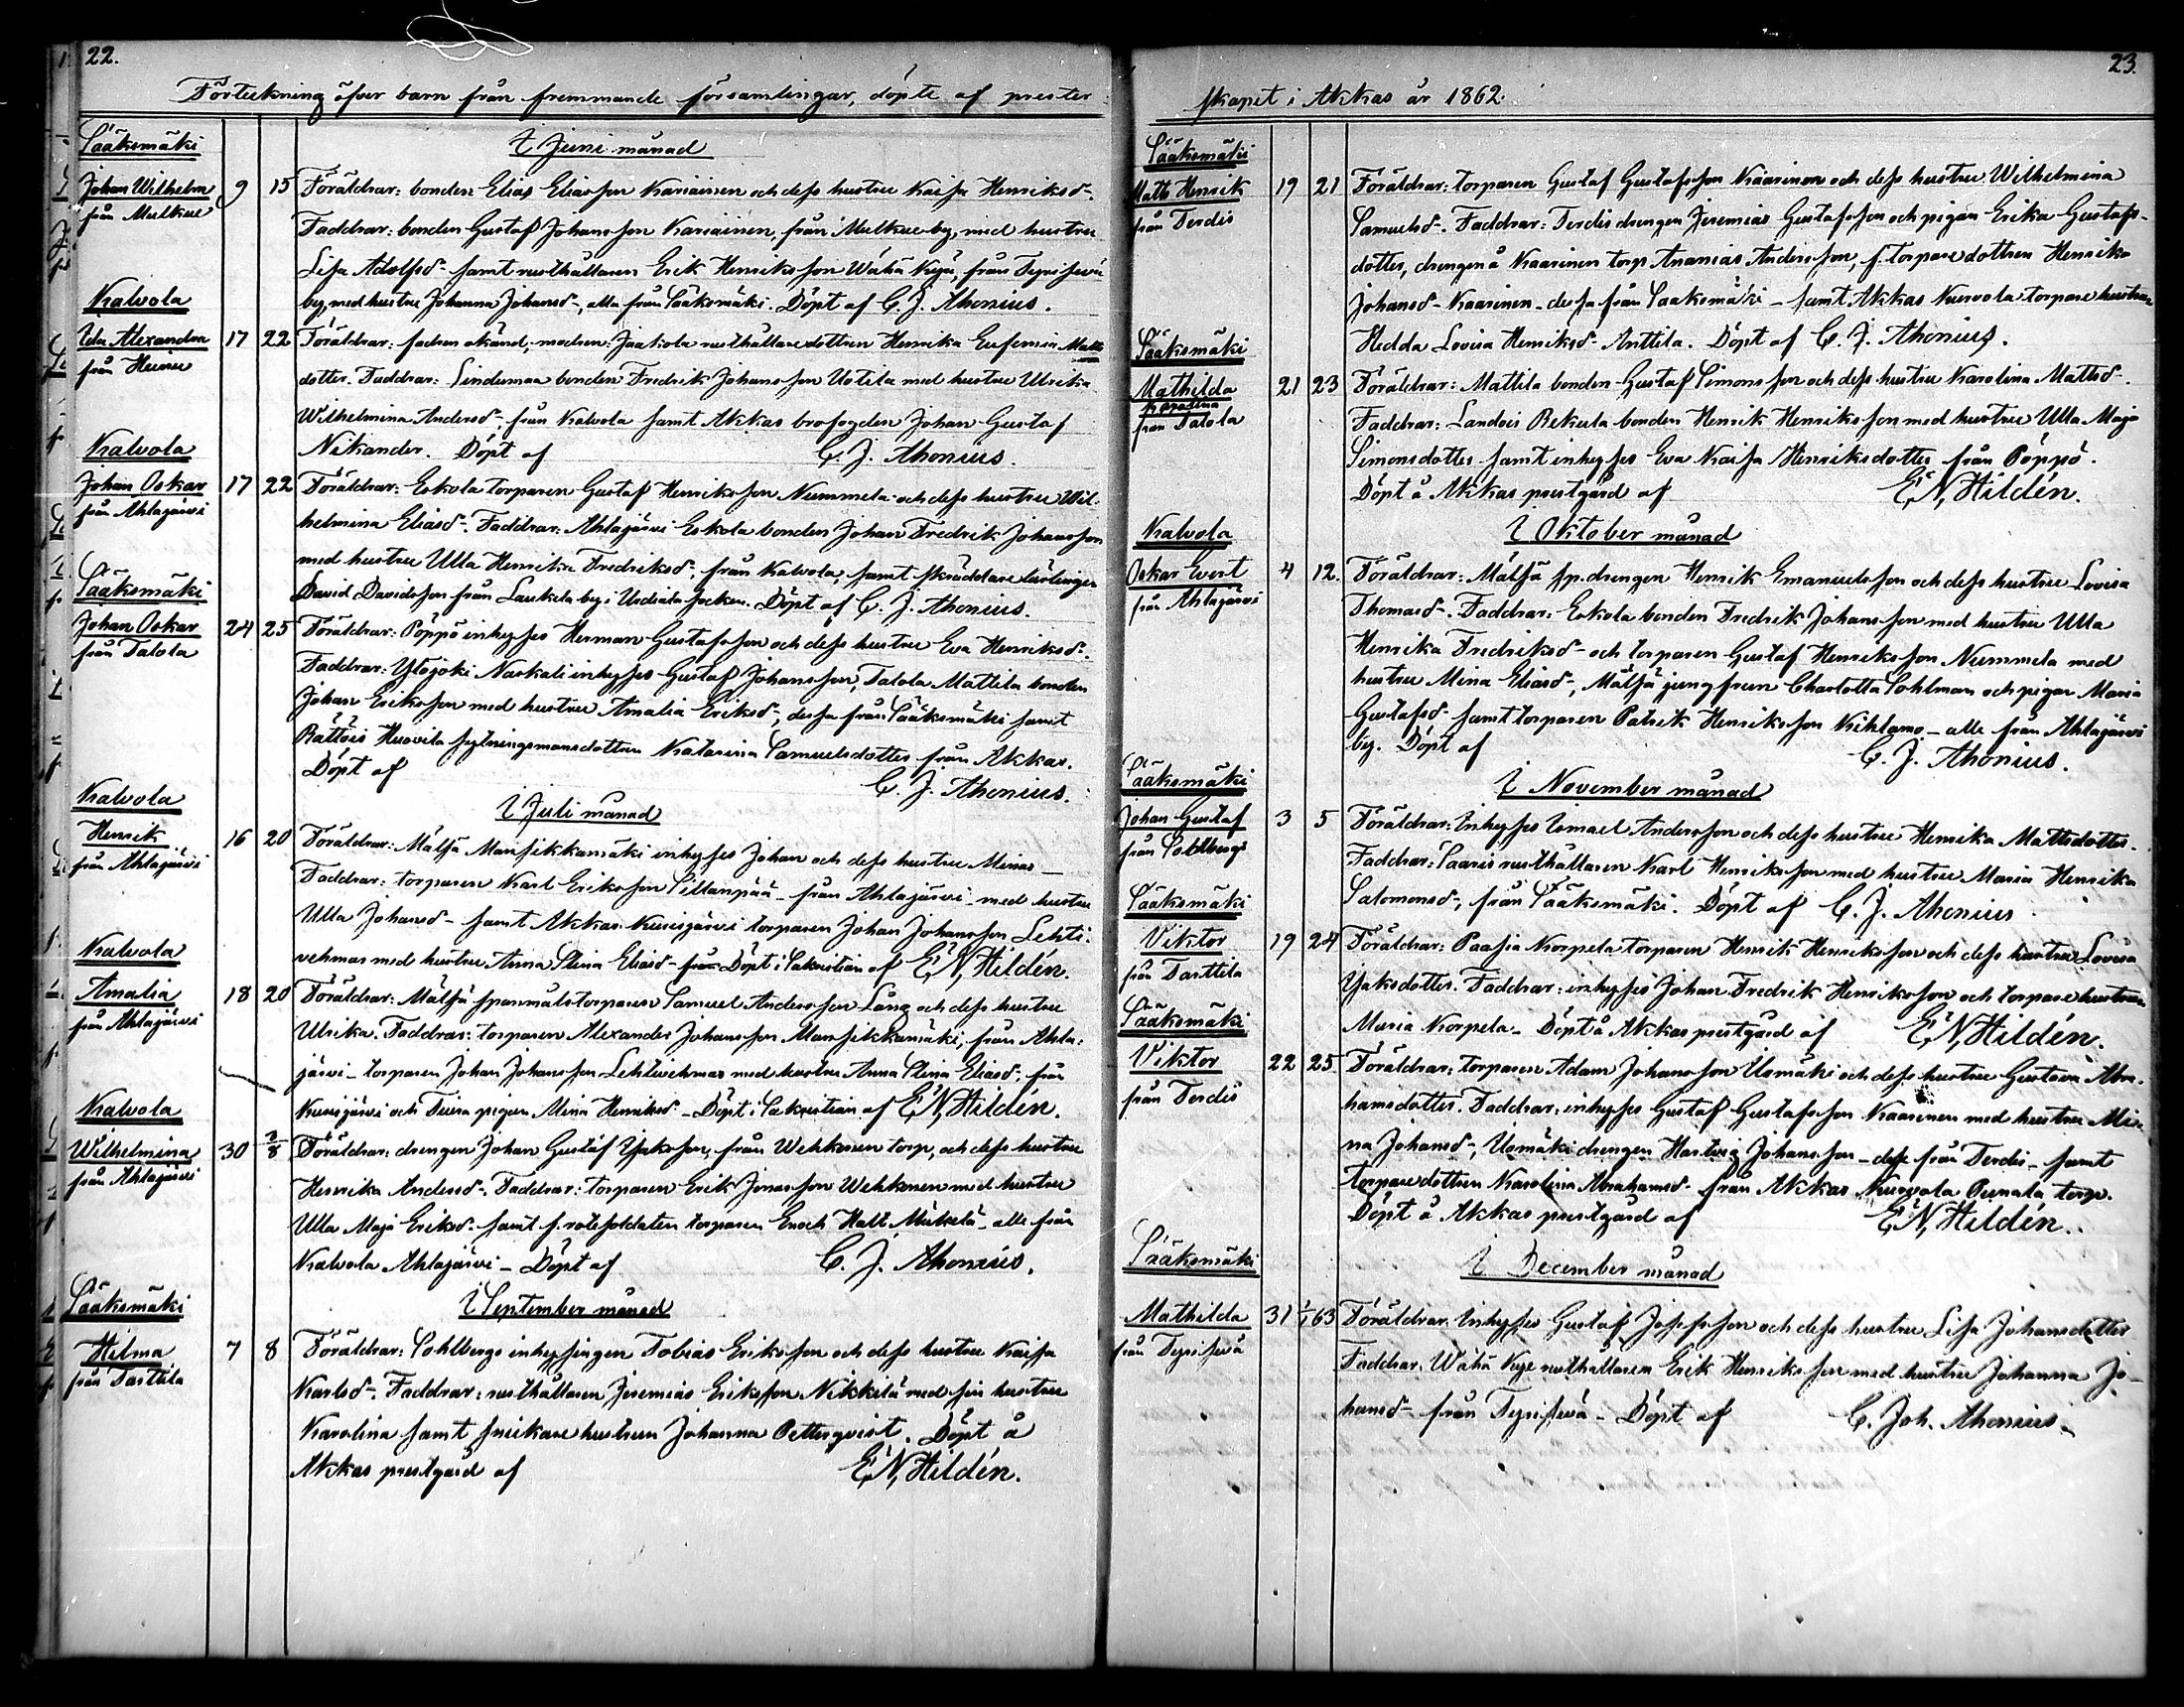 22.
Förteckning öfver barn från fremmande församlingar, döpte af prester
Sääksmäki
I Juni månad
Johan Wilhelm 9 15 Föräldrar: bonden Elias Eliasson Kariainen och dess hustru Kaisa Henriksd-.
från Mulkue
Faddrar: bonden Gustaf Johansson Kariainen, från Mulkue by, med hustru
Lisa Adolfsd- samt rusthållaren Erik Henriksson Wähä Kyju, från Tyrisevä
Kalvola
by, med hustru Johanna Johansd-, alla från Sääksmäki. Döpt af C. J. Ahonius.
Ida Alexandra 17 22 Föräldrar: fadren okänd, modren: Jaakola rusthållaredottren Henrika Eufemia Matts
från Heinu
dotter. Faddrar: Lindumaa bonden Fredrik Johansson Uotila med hustru Ulrika
Wilhelmina Andersd-, från Kalvola samt Akkas brofogden Johan Gustaf
Kalvola
Nikander. Döpt af C. J. Ahonius.
Johan Oskar 17 22 Föräldrar: Eskola torparen Gustaf Henriksson Nummela och dess hustru Wil-
från Ahlajärvi
helmina Eliasd-. Faddrar: Ahlajärvi Eskola bonden Johan Fredrik Johansson
med hustru Ulla Henrika Fredriksd-, från Kalvola, samt skräddare lärlingen
Sääksmäki
David Davidsson från Laukela by i Urdiala socken. Döpt af C. J. Ahonius.
Johan Oskar 24 25 Föräldrar: Pöppö inhyses Herman Gustafsson och dess hustru Eva Henriksd-.
från Talola
Faddrar: Ylöjoki Naskali inhyses Gustaf Johansson, Talola Mattila bonden
Johan Eriksson med hustru Amalia Eriksd-, dessa från Sääksmäki samt
Rättöis Huovila sytningsmansdottren Katarina Samuelsdotter från Akkas.
Döpt af C. J. Ahonius.
Kalvola
I Juli månad
Henrik 16 20 Föräldrar: Mälsä Mansikkamäki inhyses Johan och dess hustru Mina
från Ahlajärvi
Faddrar: torparen Karl Eriksson Sillanpää - från Ahlajärvi - med hustru
Ulla Johansd- samt Akkas Kurisjärvi torparen Johan Johansson Lehti-
Kalvola
vehmas med hustru Anna Stina Eliasd- från Döpt i Sakristian af E N, Hildén.
Amalia 18 20 Föräldrar: Mälsä spanmåls torparen Samuel Andersson Lång och dess hustru
från Ahlajärvi
Ulrika. Faddrar: torparen Alexander Johansson Mansikkamäki, från Ahla-
järvi - torparen Johan Johansson Lehtivehmas med hustru Anna Stina Eliasd-, från
Kalvola
Kurisjärvi och pigan Mina Henriksd- Döpt i Sakristian af E N, Hildén.
Wilhelmina 30 3/8 Föräldrar: drengen Johan Gustaf Isaksson, från Wehkonen torp, och dess hustru
från Ahlajärvi
Henrika Andersd-. Faddrar: torparen Erik Jonasson Wehkonen med hustru
Ulla Maja Eriksd- samt f. rotesoldaten torparen Enoch Hatt Mickelä - alle från
Kalvola Ahlajärvi - Döpt af C. J. Ahonius.
Sääksmäki
I September månad
Hilma 7 8 Föräldrar: Sohlbergs inhysingen Tobias Eriksson och dess hustru Kaisa
från Tarttila
Karlsd-. Faddrar: rusthållaren Jeremias Eriksson Nikkilä med sin hustru
Karolina samt snickare hustrun Johanna Petterqvist. Döpt å
Akkas prestgård af E N, Hildén.
23.
skapet i Akkas år 1862.
Sääksmäki
Matts Henrik 19 21 Föräldrar: torparen Gustaf Gustafsson Kaarinen och dess hustru Wilhelmina
från Terdis
Samuelsd-. Faddrar: Terdis drengen Jeremias Gustafsson och pigan Erika Gustafs-
dotter, drengen å Kaarinen torp Ananias Andersson, f. torparedottren Henrika
Johansd- Kaarinen - dessa från Sääksmäki - samt Akkas Kurvola torparehustrun
Sääksmäki
Hedda Lovisa Henriksd- Anttila. Döpt af C. J. Ahonius.
Mathilda 21 23 Föräldrar: Mattila bonden Gustaf Simonsson och dess hustru Karolina Mattsd-.
Karolina
från Talola
Faddrar: Landois Rekula bonden Henrik Henriksson med hustru Ulla Maja
Simonsdotter samt inhyses Eva Kaisa Henriksdotter från Pöppö.
Döpt å Akkas prestgård af E N, Hildén.
Kalvola
I Oktober månad
Oskar Evert 4 12. Föräldrar: Mälsä sp. drengen Henrik Emanuelsson och dess hustru Lovisa
från Ahlajärvi
Thomasd-. Faddrar: Eskola bonden Fredrik Johansson med hustru Ulla
Henrika Fredriksd- och torparen Gustaf Henriksson Nummela med
hustru Mina Eliasd-, Mälsä jungfrun Charlotta Sohlman och pigan Maria
Gustafsd- samt torparen Patrik Henriksson Kihlamo - alle från Ahlajärvi
by. Döpt af C. J. Ahonius.
Sääksmäki
I November månad
Johan Gustaf 3 5 Föräldrar: Inhyses Ismael Andersson och dess hustru Henrika Mattsdotter.
från Sohlbergs
Faddrar: Saaris rusthållaren Karl Henriksson med hustru Maria Henrika
Sääksmäki
Salomonsd-, från Sääksmäki. Döpt af C. J. Ahonius
Viktor 19 24 Föräldrar: Paasia Korpela torparen Henrik Henriksson och dess hustru Lovisa
från Tarttila
Isaksdotter. Faddrar: inhyses Johan Fredrik Henriksson och torparehustrun
Sääksmäki
Maria Korpela - Döpt å Akkas prestgård af E N, Hildén.
Viktor 22 25 Föräldrar: torparen Adam Johansson Uomäki och dess hustru Gustava Abra-
från Terdis
hamsdotter. Faddrar: inhyses Gustaf Gustafsson Kaarinen med hustru Mi-
na Johansd-, Uomäki drengen Hartvig Johansson - desse från Terdis - samt
torparedottren Karolina Abrahamsd- från Akkas Kurvola Punala torp.
Döpt å Akkas prestgård af E N, Hildén.
Sääksmäki
I December månad
Mathilda 31 1/1 63 Föräldrar: Inhyses Gustaf Josefsson och dess hustru Lisa Johansdotter
från Tyrisevä
Faddrar: Wähä Kyju rusthållaren Erik Henriksson med hustru Johanna Jo-
hansd- från Tyrisevä - Döpt af C. Joh. Ahonius.